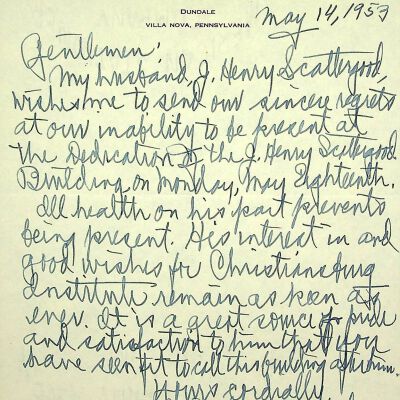 DUNDALE
VILLA NOVA, PENNSYLVANIA
May 14, 1953
Gentlemen:
My husband, J. Henry Scattergood,
wishes me to send our sincere regrets
at our inability to be present at
the Dedication of the J. Henry Scattergood
Building on Monday, May Eighteenth.
Ill health on his part prevents
being present. His interest in and
good wishes for Christiansburg
Institute remain as keen as
ever. It is a great source of pride
and satisfaction to him that you
have seen fit to call this building after him.
Yours cordially,